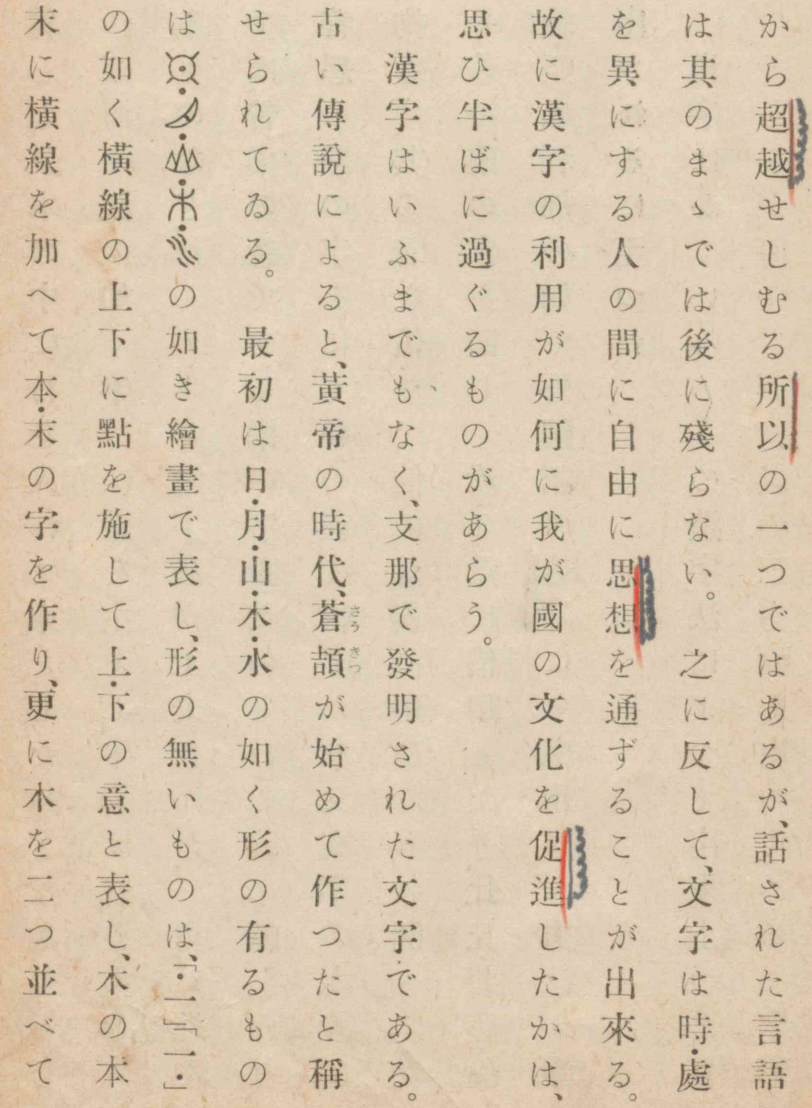 から超越せしむる所以の一つではあるが、話された言語
は其のまゝでは後に殘らない。之に反して、文字は時・處
を異にする人の間に自由に思想を通ずることが出來る。
故に漢字の利用が如何に我が國の文化を促進したかは、
思ひ半ばに過ぐるものがあらう。
漢字はいふまでもなく、支那で發明された文字である。
さうきつ
古い傳說によると、黃帝の時代、蒼頡が始めて作つたと稱
せられてゐる。最初は日・月・山・木・水の如く形の有るもの
は・・・・の如き繪畫で表し、形の無いものは、「・一」「一・」
の如く橫線の上下に點を施して上・下の意と表し、木の本
末に橫線を加へて本・末の字を作り、更に木を二つ並べて